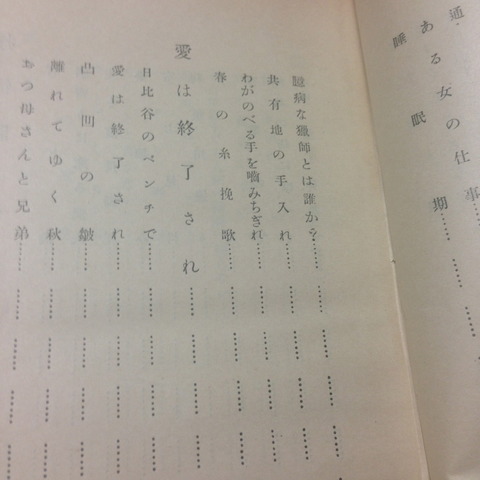 通
ある女の仕事……
睡眠期……
臆病な猟師とは誰か？……
共有地の手入れ……
わがのべる手を嚙みちぎれ……
春の糸挽歌……
愛は終了され
日比谷のベンチで……
愛は終了され……
凸凹の皺……
離れてゆく秋……
おつ母さんと兄弟……